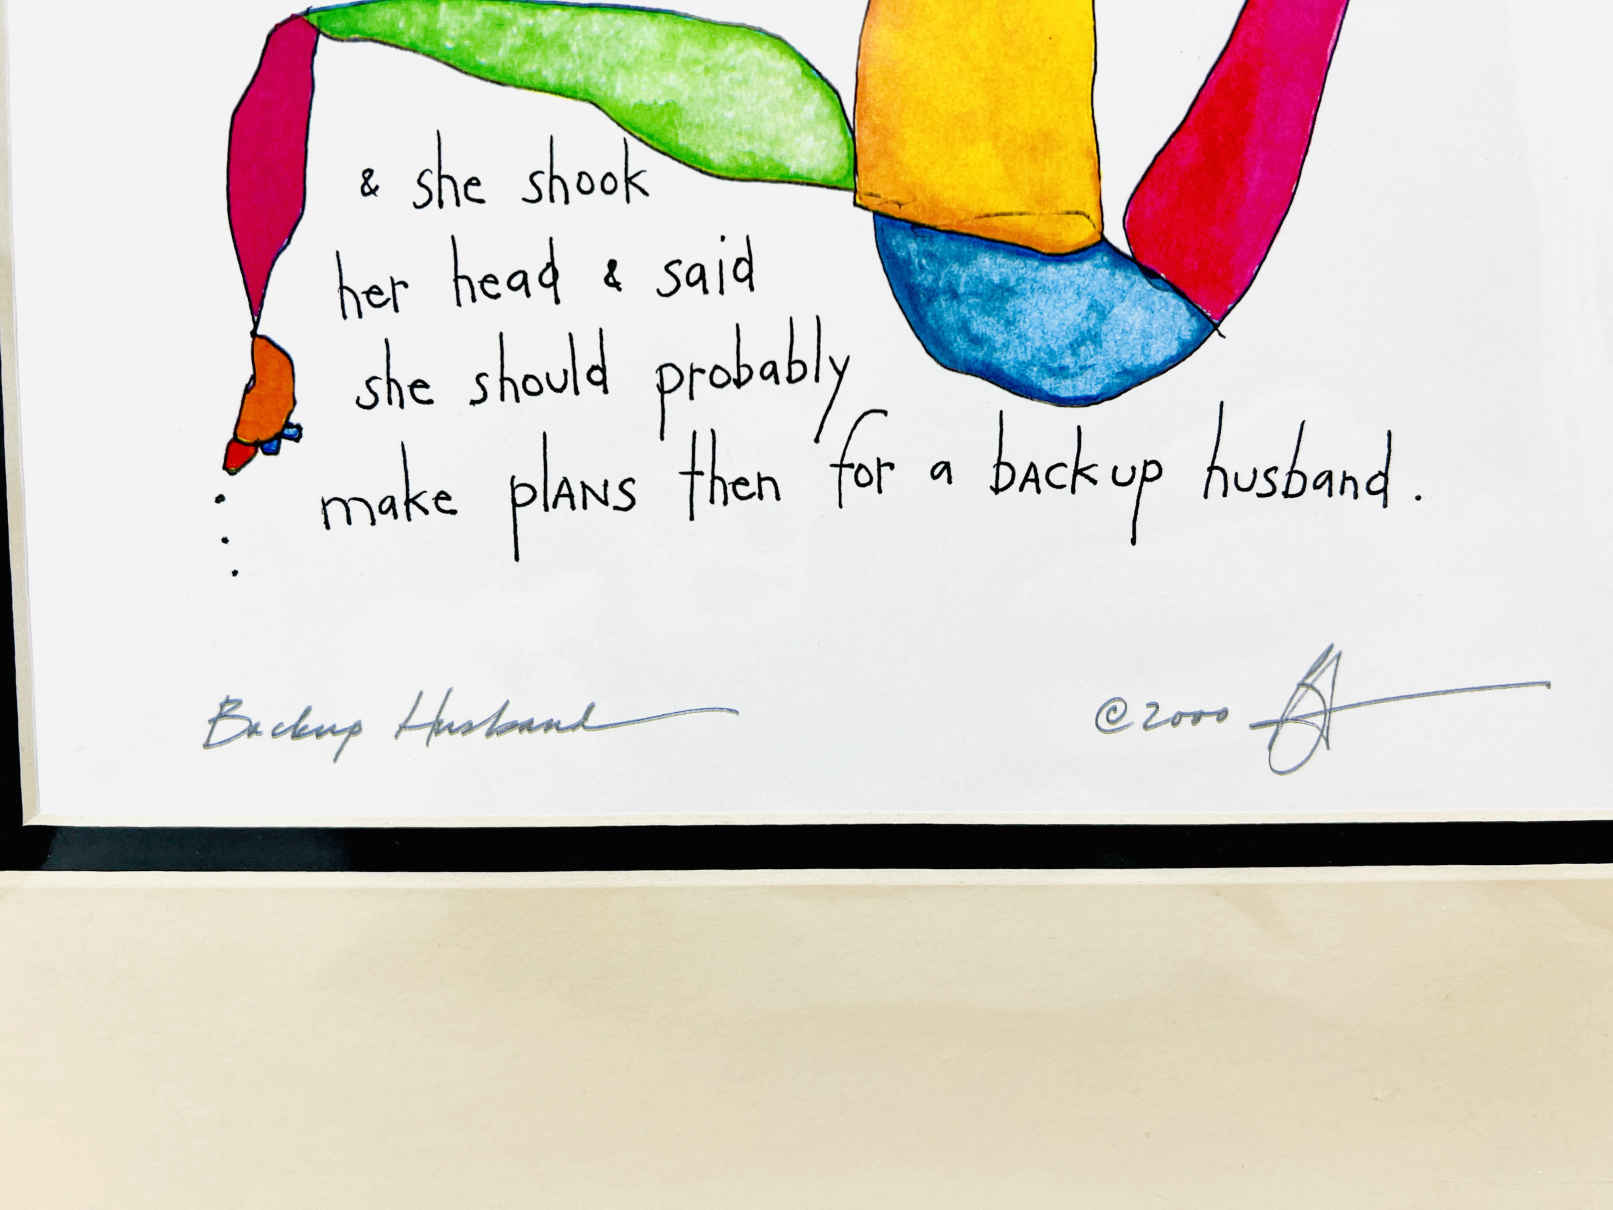 & she shook
her head & said
she should probably
make plANS then for a bACKup husband.
Backup Husband
©2000